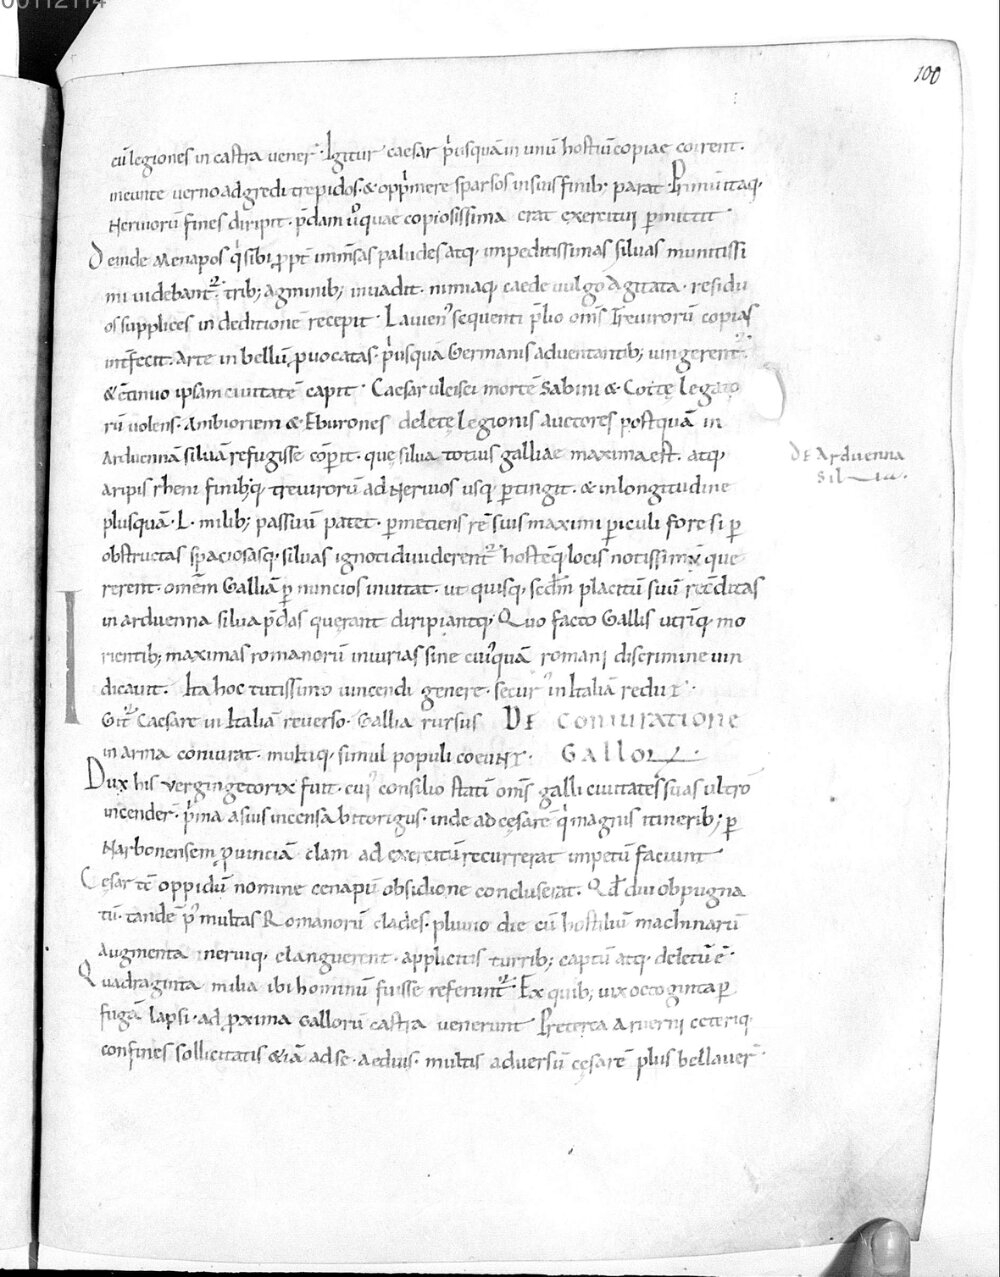 00112114
100
cū legiones in castra uener̄· Igitur caesar p̍usquam in unū hostiū copiae coirent·
ineunte uerno adgredi trepidos· & opp̍mere sparsos in suis finib; parat· Primū itaq·
Neruiorū fines diripit· p̄dam u̾o quae copiosissima erat exercitui ꝑmittit·
Deinde Menapos q̍ sibi ꝓpt̄ inm̄sas paludes atq· inpeditissimas siluas munitissi
mi uidebant᷑· trib; agminib; inuadit· nimiaq· caede uulgo agitata· residu
os supplices in deditionē recepit· Lauien᾽ sequenti p̄lio om̄s Treuirorū copias
int̄fecit· Arte in bellū ꝓuocatas· p̍usquā Germanis aduentantib; iungerent᷑·
& c̄tinuo ipsam ciuitatē capit· Caesar ulcisci mortē Sabini & Cottę legato
rū uolens· Ambioriem & Eburones deletę legionis auctores postquā in
Arduennā siluā refugisse cōperit· quę silua totius galliae maxima est· atq·
a ripis rheni finib;q· treuirorū ad Neruios usq· ꝑtingit· & in longitudine
plus quā· L· milib; passuū patet· ꝑmetiens rē suis maximi ꝑiculi fore si ꝑ
obstructas spaciosasq· siluas ignoti diuiderent᷑ hostēq· locis notissimū que
rerent· omēm Galliā ꝑ nuncios inuitat· ut quisq· secdm̄ placitū suū recōditas
in arduenna silua p̄das quęrant diripiantq· Quo facto Gallis utrīq· mo
rientib; maximas romanorū iniurias sine cui᾽quā romani discrimine uin
dicauit· Ita hoc tutissimo uincendi genere· secur᾽ in Italiā rediit·
Igit᷑ Caesare in Italiā reuerso· Gallia rursus DE CONIURATIONE
in arma coniurat· multiq· simul populi coeunt· GALLOR̄
Dux his vergingetorix fuit· cui᾽ consilio statī om̄s galli ciuitates suas ultro
incender̄· p̍ma a suis incensa bitorigus· inde ad cęsarē q̍ magnis itinerib; ꝑ
Narbonensem ꝓuinciā clam ad exercitū recurrerat impetū faciunt
Cęsar tc̄ oppidū nomine cenapū obsidione concluserat· Qd̄ diu obpugna
tū· tandē p᾽ multas Romanorū clades· pluuio die cū hostiliū machinarū
augmenta neruiq· elanguerent· applicitis turrib; captū atq· deletū ē·
Quadraginta milia ibi hominū fuisse referunt᷑· Ex quib; uix octoginta ꝑ
fugā lapsi· ad ꝓxima Gallorū castra uenerunt Preterea Aruerni ceteriq·
confines sollicitatis &iā ad se· aeduis· multis aduersū cęsarē plus bellauer̄·
DE Arduenna
Silua·